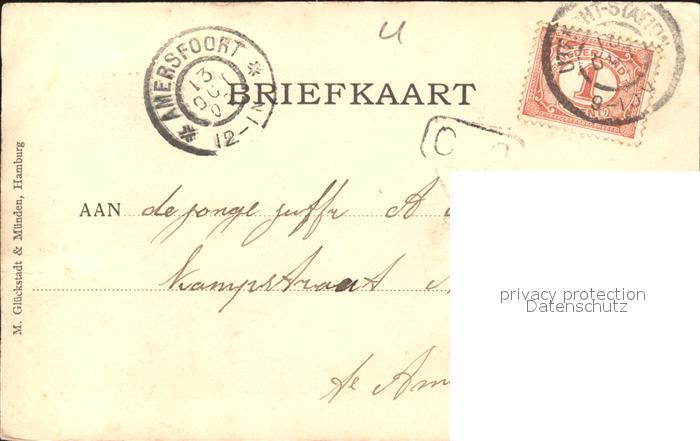 AMERSFOORT
12-1N
BRIEFKAART
NEDERLAND
1
AAN de jonge juffr A
Kampstraat
te Am
M. Glückstadt & Münden, Hamburg
privacy protection
Datenschutz